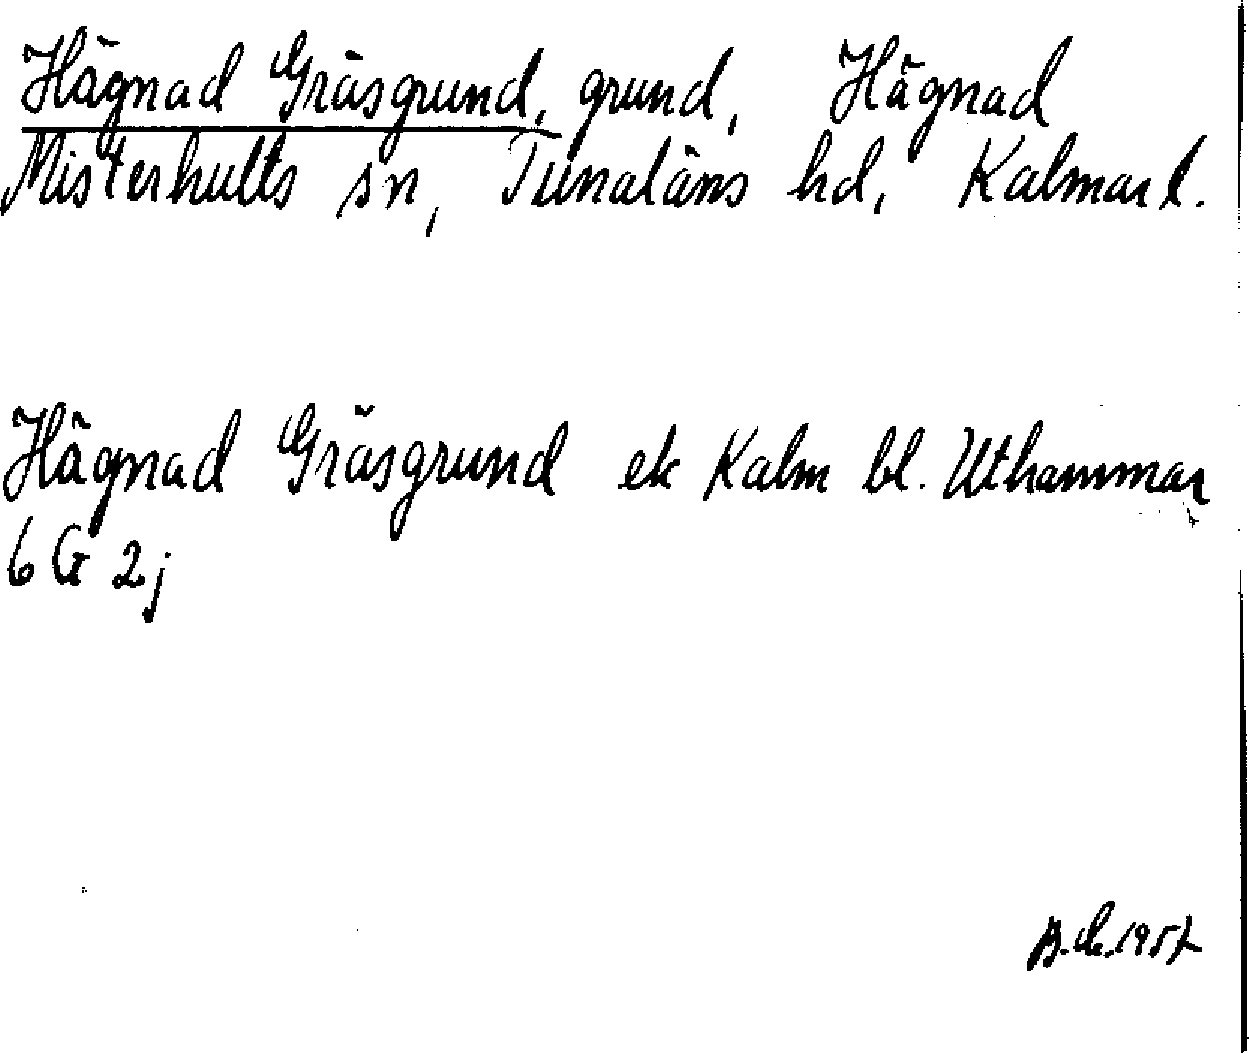 Hägnad Gräsgrund, grund, Hägnad
Misterhults sn, Tunaläns hd, Kalmar l.
Hägnad Gräsgrund ek Kalm bl. Uthammar
6 G 2j